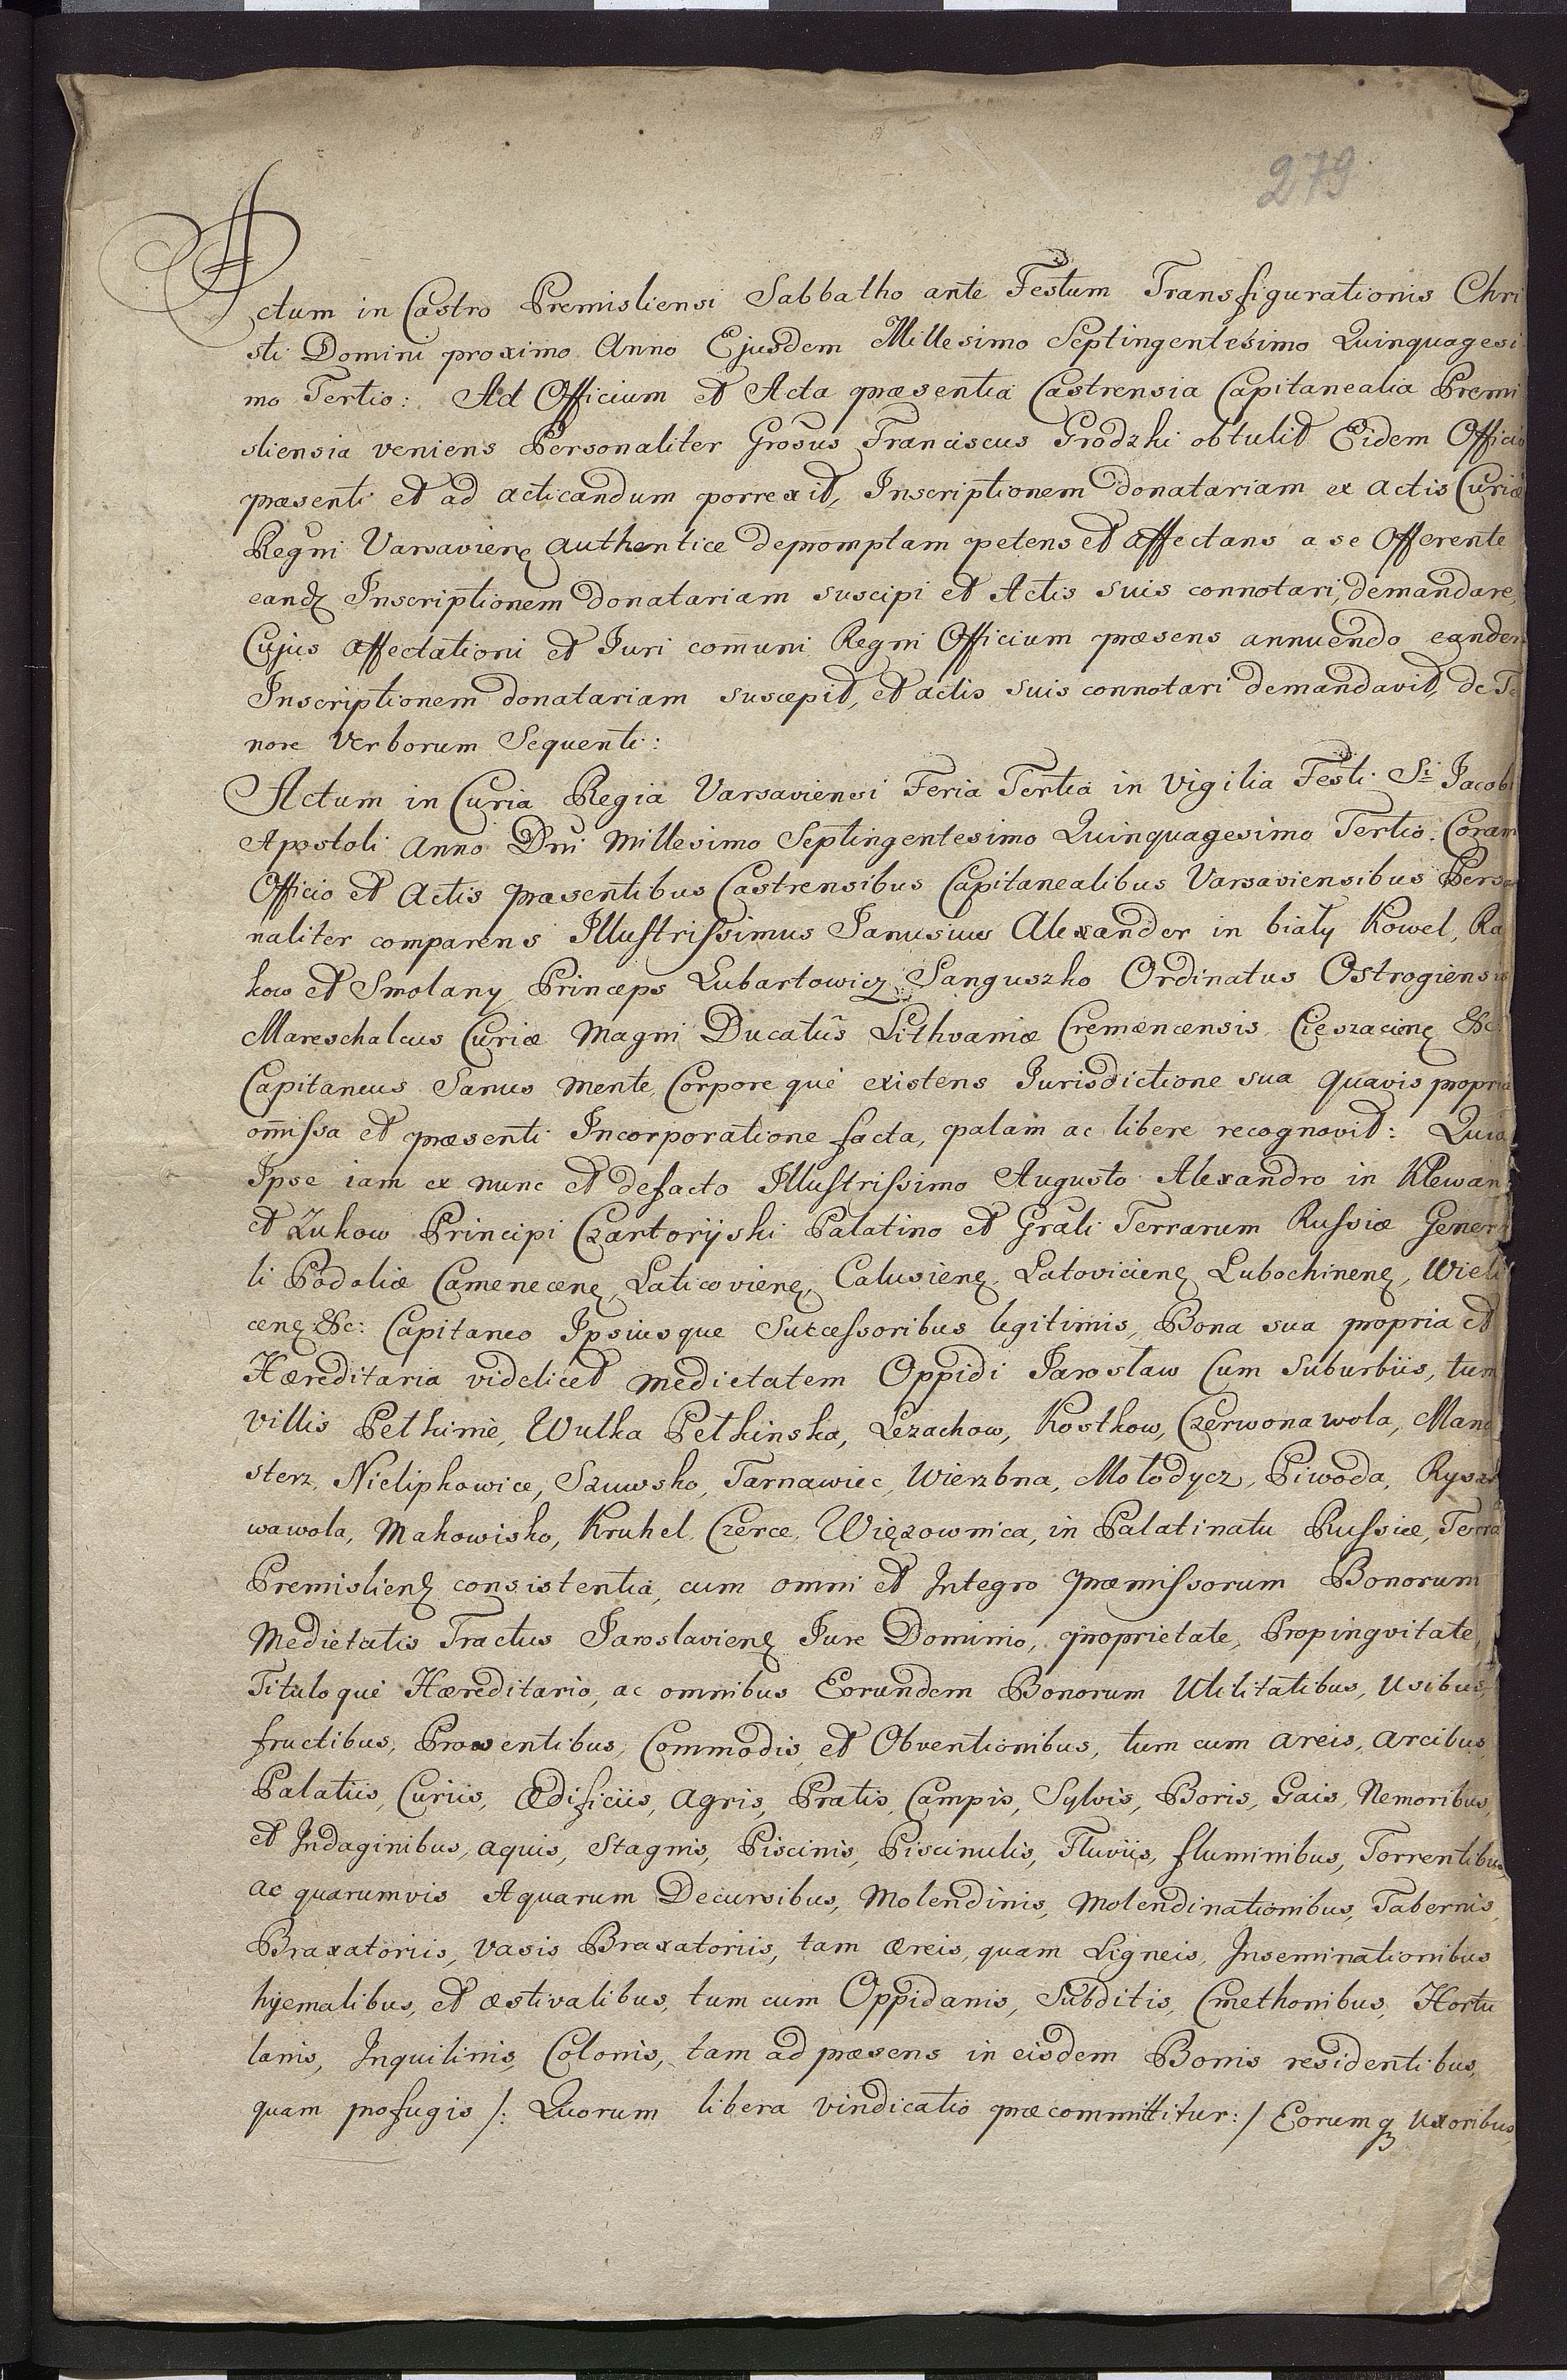 279
Actum in Castro Premisliensi Sabbatho ante Festum Transfigurationis Chri
sti Domini proximo Anno Ejusdem Millesimo Septingentesimo Quinquagesi
mo Tertio: Ad Officium et Acta præsentia Castrensia Capitanealia Premi
sliensia veniens Personaliter Grōsus Franciscus Grodzki obtulit Eidem Officio
præsenti et ad acticandum porrexit, Inscriptionem donatariam ex actis Curiæ
Regni Varsavienę authentice depromptam petens et affectans a se Offerente
eandę Inscriptionem donatariam suscipi et Actis suis connotari, demandare,
Cujus affectationi et Juri com̄uni Regni Officium præsens annuendo eandem
Inscriptionem donatariam suscepit, et actis suis connotari demandavit, de Te
nore Verborum Sequenti:
Actum in Curia Regia Varsaviensi Feria Tertia in Vigilia Festi Sti Jacobi
Apostoli Anno Dni Millesimo Septingentesimo Quinquagesimo Tertio. Coram
Officio et Actis præsentibus Castrensibus Capitanealibus Varsaviensibus Perso
naliter comparens Illustrissimus Janusius Alexander in biały Kowel, Ra
kow et Smolany Princeps Lubartowicz Sanguszko Ordinatus Ostrogiensis
Mareschalcus Curiæ Magni Ducatûs Lithvaniæ Cremæncensis, Cieszacienę &c:
Capitaneus Sanus Mente, Corpore què existens Jurisdictione sua quavis propria
om̄issa et præsenti Incorporatione facta, palam ac libere recognovit: Quia
Ipse iam ex nunc et defacto Illustrissimo Augusto Alexandro in Klewan
et Zukow Principi Czartoryiski Palatino et Grāli Terrarum Russiæ Genera
li Podoliæ Camenecenę, Laticovienę, Calusienę, Latovicienę Lubochinenę, Wieli
cenę &c: Capitaneo Ipsiusque Successoribus legitimis, Bona sua propria et
Hæreditaria videlicet medietatem Oppidi Jarosław Cum Suburbiis, tum
villis Pełkinie, Wulka Pełkinska, Lezachow, Kostkow, Czerwona wola, Mana
sterz, Nielipkowice, Szuwsko, Tarnawiec, Wierzbna, Mołodycz, Piwoda, Ryszk
wawola, Makowisko, Kruhel Czerce, Więzownica, in Palatinatu Russiæ, Terra
Premislienę consistentia, cum omni et Integro præmissorum Bonorum
Medietatis Tractus Jaroslavienę Jure Dominio, proprietate, Propingvitate,
Titulo què Hæreditario, ac omnibus Eorundem Bonorum Utilitatibus, Usibus,
fructibus, Proventibus, Commodis, et Obventionibus, tum cum areis, arcibus,
Palatiis, Curiis, Ædificiis, Agris, Pratis, Campis, Sylvis, Boris, Gais, Nemoribus,
et Indaginibus, aquis, Stagnis, Piscinis, Piscinulis, Fluviis, fluminibus, Torrentibus,
ac quarumvis Aquarum Decursibus, Molendinis, Molendinationibus, Tabernis,
Braxatoriis, vasis Braxatoriis, tam æreis, quam Ligneis, Inseminationibus
hyemalibus, et æstivalibus, tum cum Oppidanis, Subditis, Cmethonibus, Hortu
lanis, Inquilinis, Colonis, tam ad præsens in eisdem Bonis residentibus,
quam profugis /: Quorum libera vindicatio præcommittitur: / Eorumq Uxoribus,